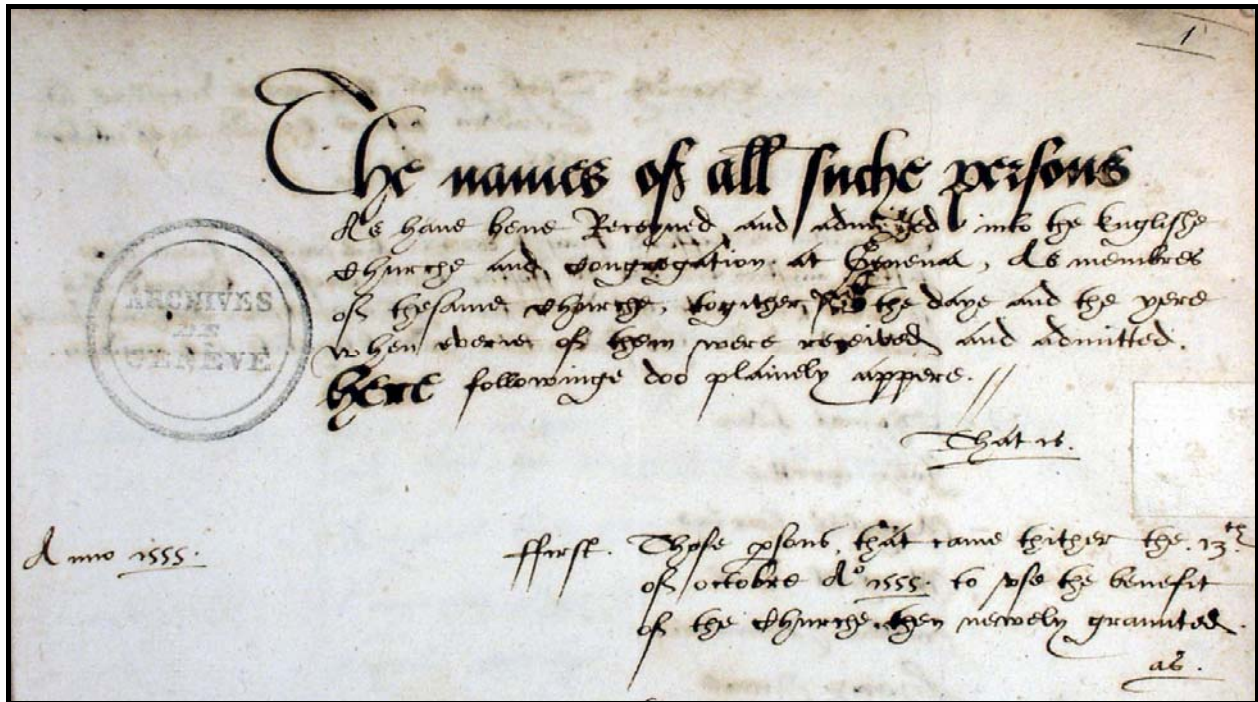 1
The names of all suche persons
As have bene Receyved and admitted into the Englishe
Churche and Congregation at Geneva, As membres
of thesame Churche, togither, the daye and the yere
when everie of them were received and admitted.
here followinge doo plainely appere. //
That is.
ARCHIVES
DE
GENÈVE
Anno 1555.
ffirst. Those psons, that came thither the 13th
of octobre Ao 1555. to vse the benefit
of the Churche then newely graunted.
as.